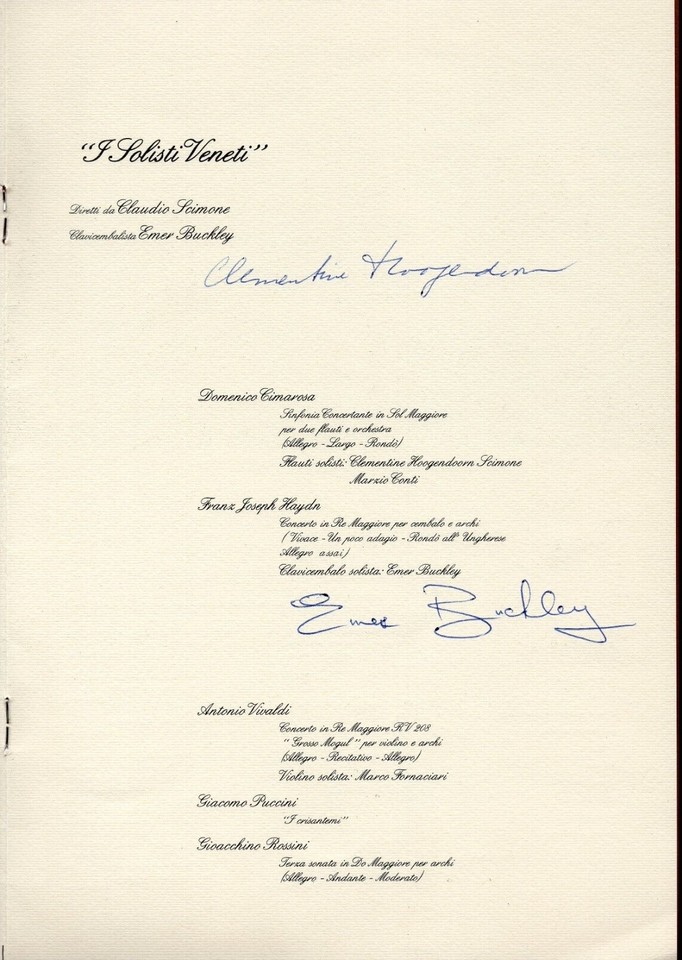 "I Solisti Veneti"
Diretti da Claudio Scimone
Clavicembalista Emer Buckley
Clementine Hoogendoorn
Domenico Cimarosa
Sinfonia Concertante in Sol Maggiore
per due flauti e orchestra
(Allegro - Largo - Rondò)
Flauti solisti: Clementine Hoogendoorn Scimone
Marzio Conti
Franz Joseph Haydn
Concerto in Re Maggiore per cembalo e archi
(Vivace - Un poco adagio - Rondò all' Ungherese
Allegro assai)
Clavicembalo solista: Emer Buckley
Emer Buckley
Antonio Vivaldi
Concerto in Re Maggiore RV 208
"Grosso Mogul" per violino e archi
(Allegro - Recitativo - Allegro)
Violino solista: Marco Fornaciari
Giacomo Puccini
"I crisantemi"
Gioacchino Rossini
Terza sonata in Do Maggiore per archi
(Allegro - Andante - Moderato)